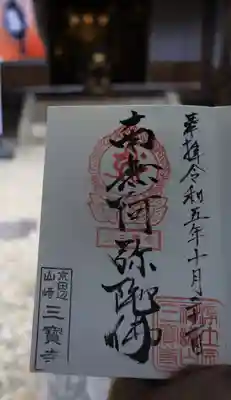 奉拝令和五年十月二十一日
南無阿弥陀佛
京田辺
山崎
三寶寺